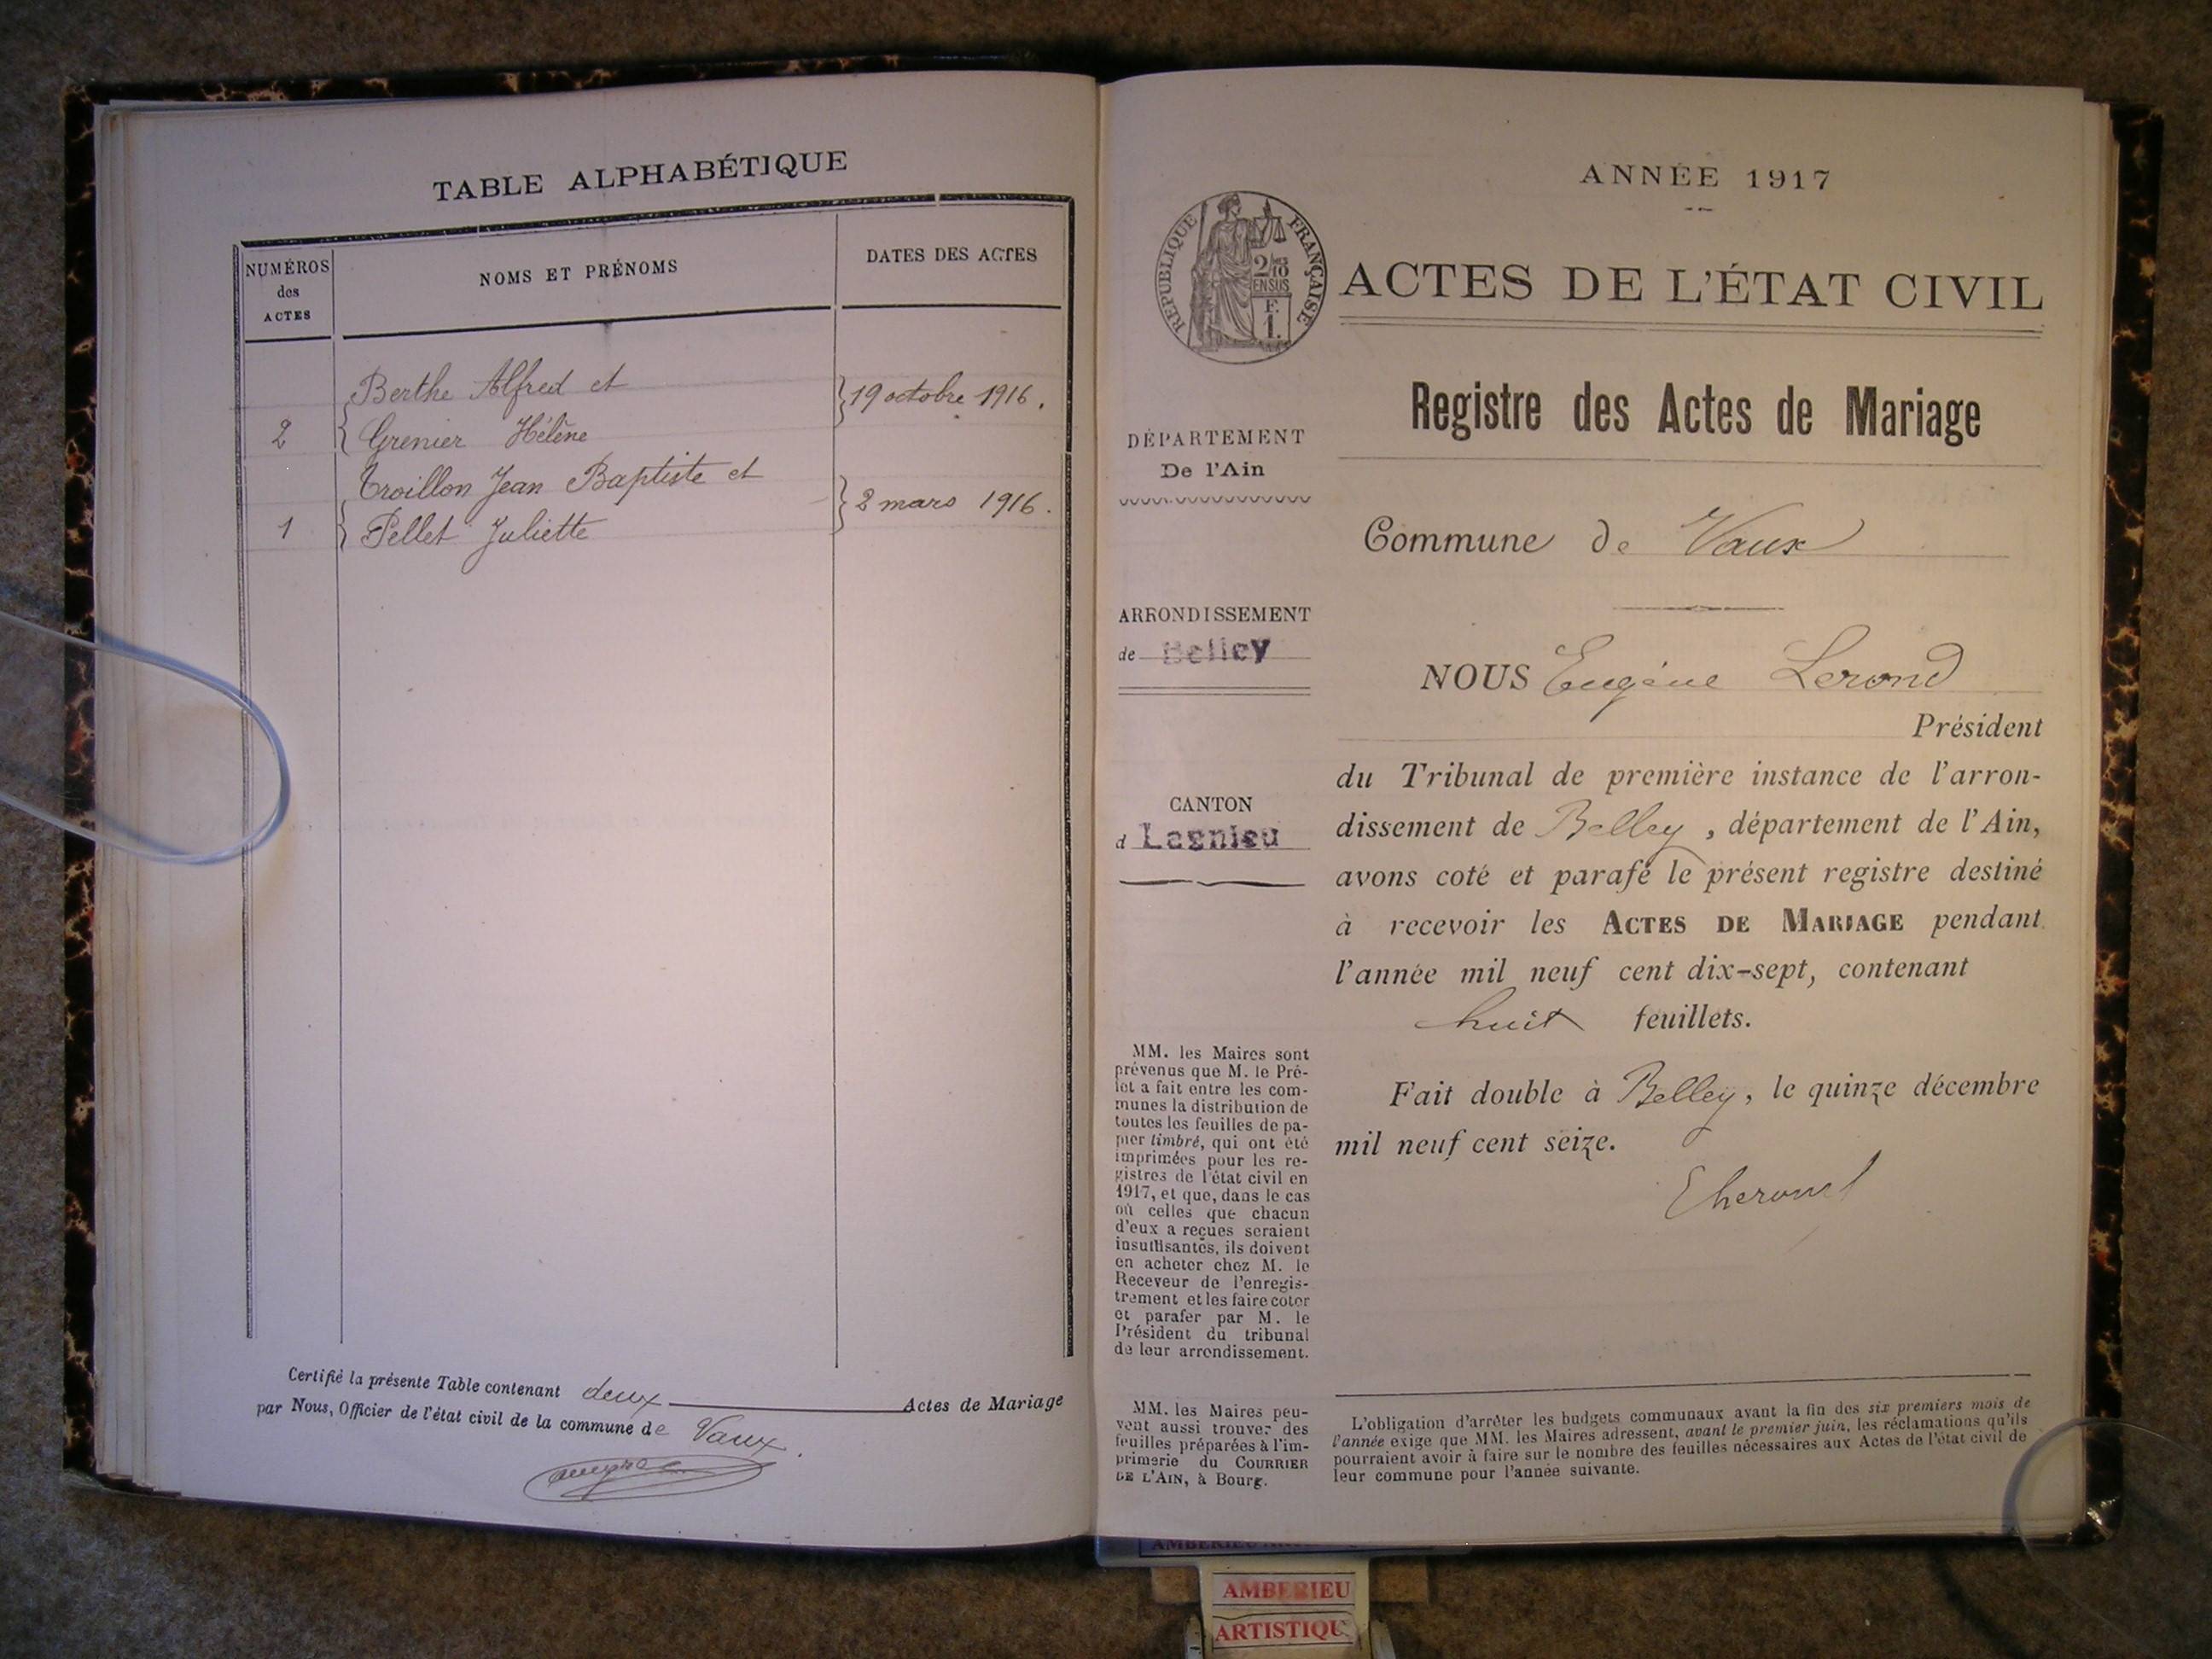 TABLE ALPHABÉTIQUE
NUMÉROS des ACTES
NOMS ET PRÉNOMS
DATES DES ACTES
Berthe Alfred et
19 octobre 1916.
2 Grenier Hélène
Troillon Jean Baptiste et
2 mars 1916.
1 Pellet Juliette
Certifié la présente Table contenant deux Actes de Mariage
par Nous, Officier de l'état civil de la commune de Vaux.
ANNÉE 1917
RÉPUBLIQUE FRANÇAISE
2/10 EN SUS
F. 1.
ACTES DE L'ÉTAT CIVIL
Registre des Actes de Mariage
DÉPARTEMENT
De l'Ain
Commune de Vaux
ARRONDISSEMENT
de Belley
CANTON
d Lagnieu
NOUS Eugène Lerond
Président
du Tribunal de première instance de l'arron-
dissement de Belley, département de l'Ain,
avons coté et parafé le présent registre destiné
à recevoir les ACTES DE MARIAGE pendant
l'année mil neuf cent dix-sept, contenant
huit feuillets.
Fait double à Belley, le quinze décembre
mil neuf cent seize.
MM. les Maires sont
prévenus que M. le Pré-
fet a fait entre les com-
munes la distribution de
toutes les feuilles de pa-
pier timbré, qui ont été
imprimées pour les re-
gistres de l'état civil en
1917, et que, dans le cas
où celles que chacun
d'eux a reçues seraient
insuffisantes, ils doivent
en acheter chez M. le
Receveur de l'enregis-
trement et les faire coter
et parafer par M. le
Président du tribunal
de leur arrondissement.
MM. les Maires peu-
vent aussi trouver des
feuilles préparées à l'im-
primerie du COURRIER
DE L'AIN, à Bourg.
L'obligation d'arrêter les budgets communaux avant la fin des six premiers mois de
l'année exige que MM. les Maires adressent, avant le premier juin, les réclamations qu'ils
pourraient avoir à faire sur le nombre des feuilles nécessaires aux Actes de l'état civil de
leur commune pour l'année suivante.
AMBERIEU
ARTISTIQU